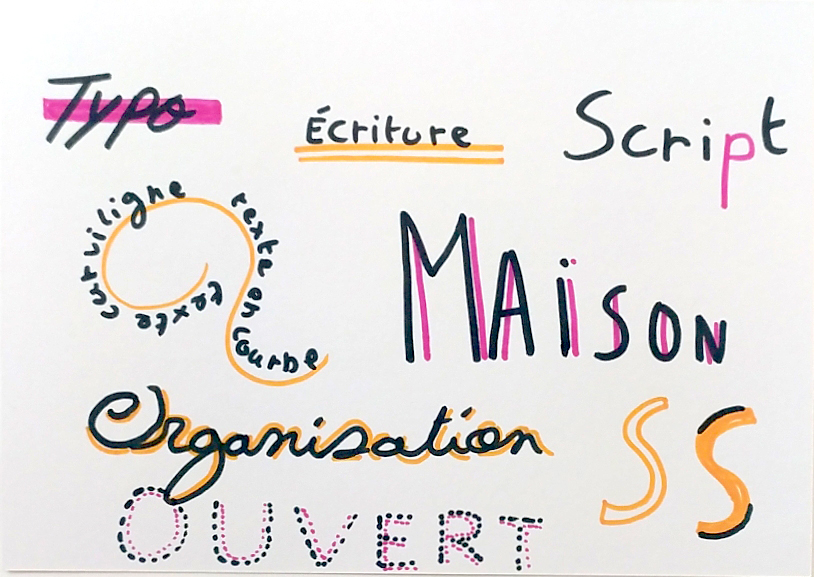 Typo
Écriture
Script
texte curviligne
texte en courbe
MAiSON
Organisation
SS
OUVERT